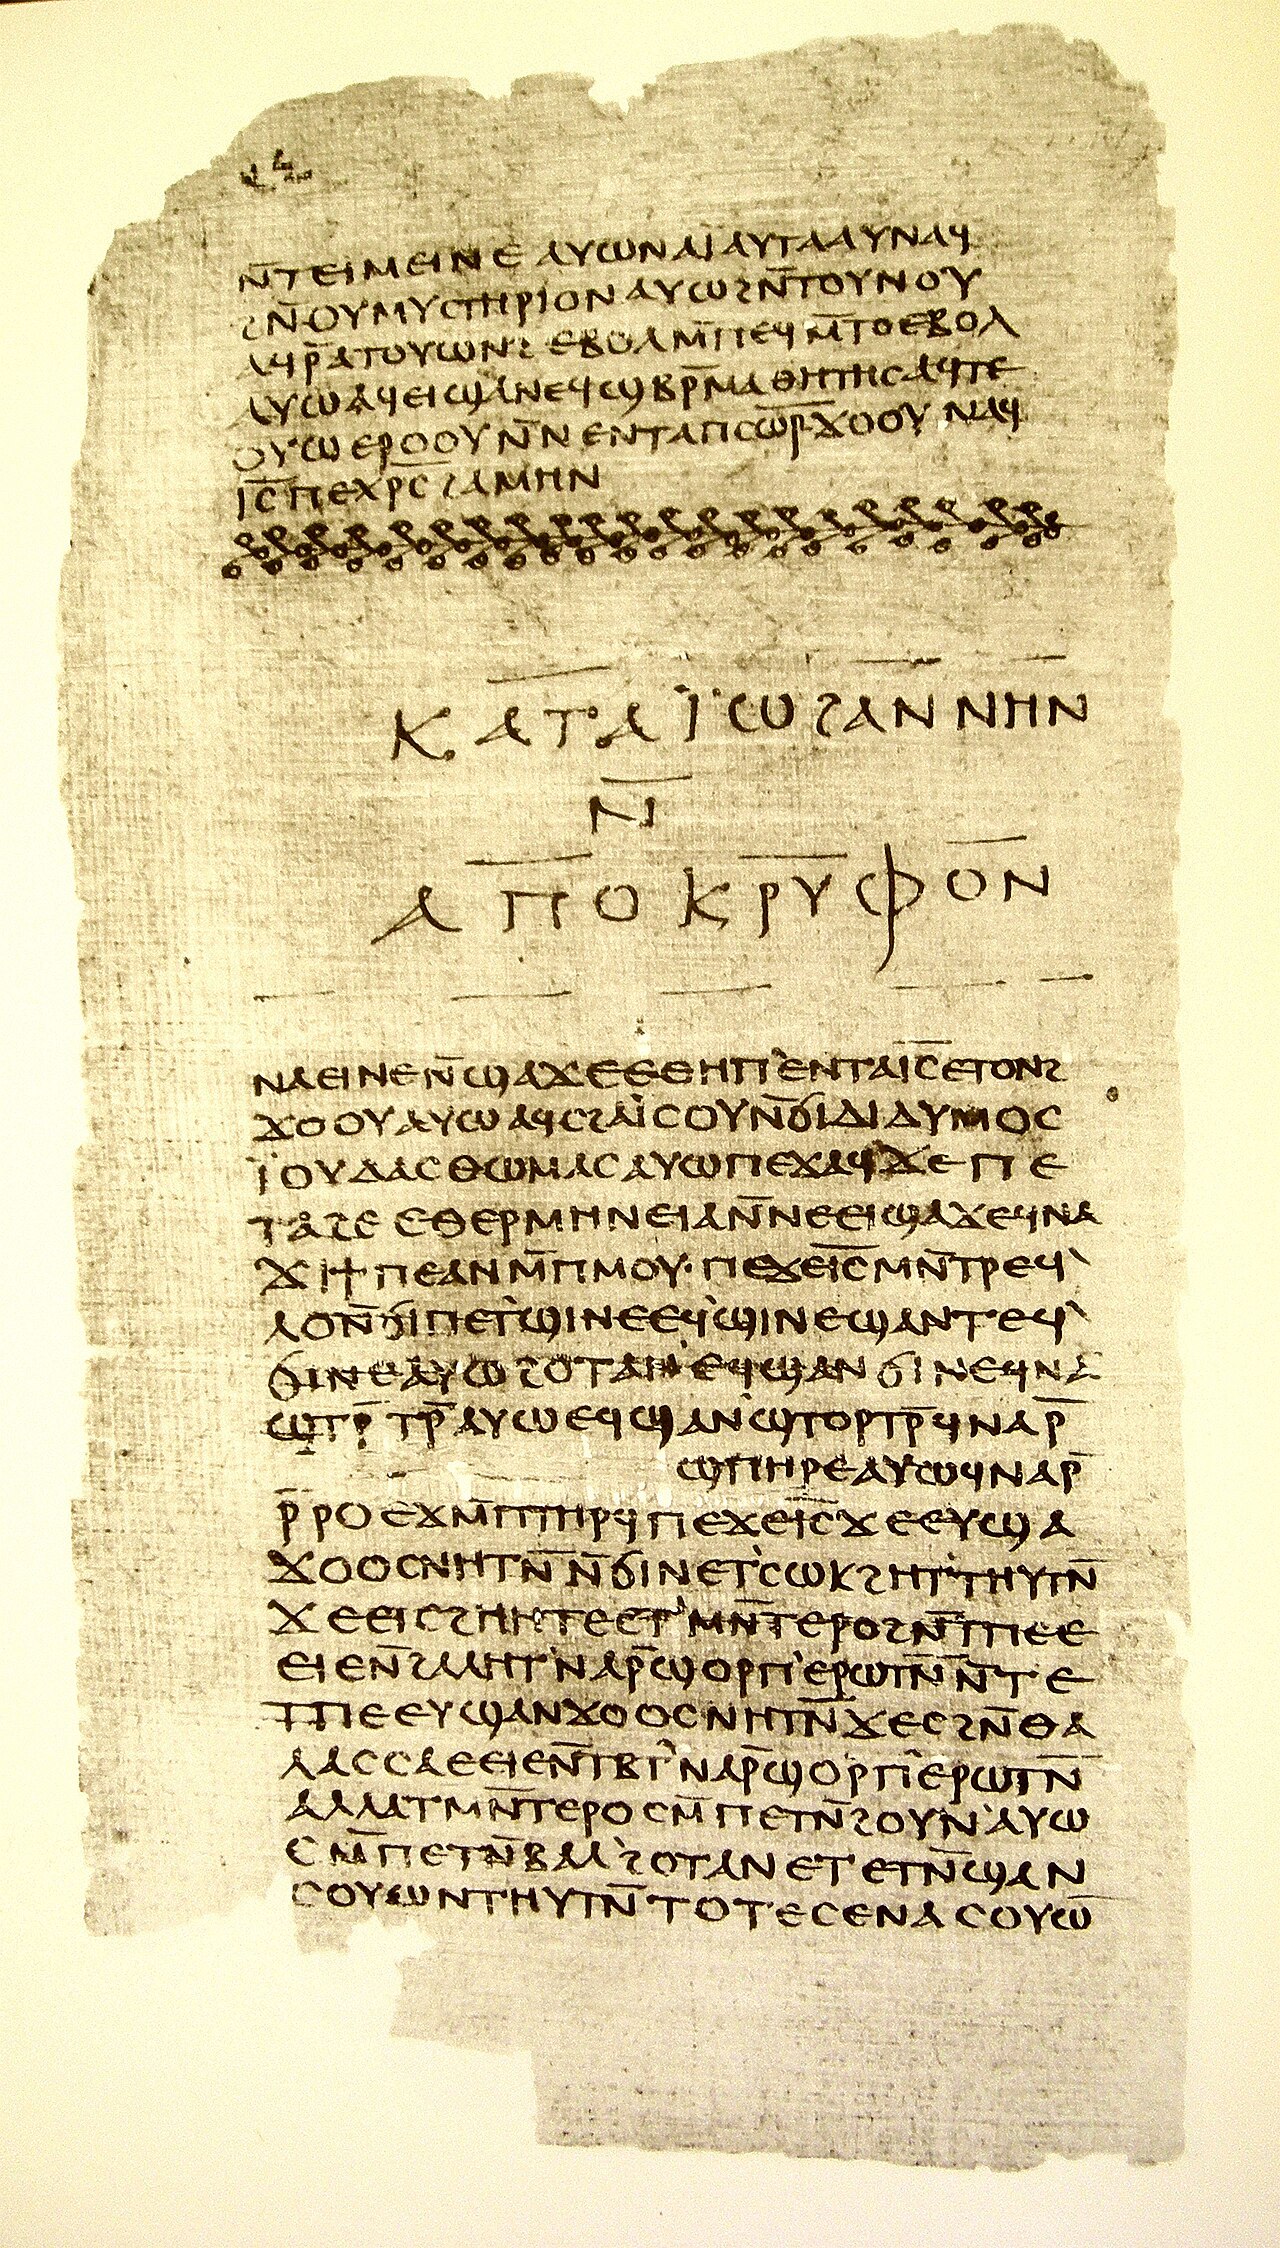 ⲛ̄ⲧⲉⲓⲙⲉⲓⲛⲉ ⲁⲩⲱ ⲛⲁⲓ̈ ⲁⲩⲧⲁⲁⲩ ⲛⲁϥ
ϩⲛ̄ ⲟⲩⲙⲩⲥⲧⲏⲣⲓⲟⲛ ⲁⲩⲱ ϩⲛ̄ ⲧⲟⲩⲛⲟⲩ
ⲁϥⲣ̄ ⲁⲧⲟⲩⲱⲛϩ ⲉⲃⲟⲗ ⲙ̄ⲡⲉϥⲙ̄ⲧⲟ ⲉⲃⲟⲗ
ⲁⲩⲱ ⲁϥⲉⲓ ϣⲁ ⲛⲉϥϣⲃⲣ̄ⲙⲁⲑⲏⲧⲏⲥ ⲁϥⲧⲉ
ⲟⲩⲱ ⲉⲣⲟⲟⲩ ⲛ̄ⲛⲉⲛⲧⲁ ⲡⲥⲱ̅ⲣ̅ ϫⲟⲟⲩ ⲛⲁϥ
ⲓ̅ⲥ̅ ⲡⲉⲭⲣ̅ⲥ̅ ϩⲁⲙⲏⲛ
ⲕⲁⲧⲁ ⲓ̈ⲱϩⲁⲛⲛⲏⲛ
ⲛ̄
ⲁⲡⲟⲕⲣⲩⲫⲟⲛ
ⲛⲁⲉⲓ ⲛⲉ ⲛ̄ϣⲁϫⲉ ⲉⲑⲏⲡ` ⲉⲛⲧⲁ ⲓ̅ⲥ̅ ⲉⲧⲟⲛϩ
ϫⲟⲟⲩ ⲁⲩⲱ ⲁϥⲥϩⲁⲓ̈ⲥⲟⲩ ⲛ̄ϭⲓ ⲇⲓⲇⲩⲙⲟⲥ
ⲓ̈ⲟⲩⲇⲁⲥ ⲑⲱⲙⲁⲥ ⲁⲩⲱ ⲡⲉϫⲁϥ ϫⲉ ⲡⲉ
ⲧⲁϩⲉ ⲉⲑⲉⲣⲙⲏⲛⲉⲓⲁ ⲛ̄ⲛⲉⲉⲓϣⲁϫⲉ ϥⲛⲁ
ϫⲓ ϯⲡⲉ ⲁⲛ ⲙ̄ⲡⲙⲟⲩ· ⲡⲉϫⲉ ⲓ̅ⲥ̅ ⲙⲛ̄ⲧⲣⲉϥ`
ⲗⲟ ⲛ̄ϭⲓ ⲡⲉⲧ`ϣⲓⲛⲉ ⲉϥ`ϣⲓⲛⲉ ϣⲁⲛⲧⲉϥ`
ϭⲓⲛⲉ ⲁⲩⲱ ϩⲟⲧⲁⲛ` ⲉϥϣⲁⲛϭⲓⲛⲉ ϥⲛⲁ
ϣⲧⲣ̄ⲧⲣ̄ ⲁⲩⲱ ⲉϥϣⲁⲛ`ϣⲧⲟⲣⲧⲣ̄ ϥⲛⲁⲣ̄
ϣⲡⲏⲣⲉ ⲁⲩⲱ ϥⲛⲁⲣ̄
ⲣ̄ⲣⲟ ⲉϫⲙ̄ ⲡⲧⲏⲣϥ ⲡⲉϫⲉ ⲓ̅ⲥ̅ ϫⲉ ⲉⲩϣⲁ
ϫⲟⲟⲥ ⲛⲏⲧⲛ̄ ⲛ̄ϭⲓ ⲛⲉⲧ`ⲥⲱⲕ ϩⲏⲧ` ⲧⲏⲩⲧⲛ̄
ϫⲉ ⲉⲓⲥϩⲏⲏⲧⲉ ⲉⲧ`ⲙⲛ̄ⲧⲉⲣⲟ ϩⲛ̄ ⲧⲡⲉ ⲉ
ⲉⲓⲉ ⲛ̄ϩⲁⲗⲏⲧ` ⲛⲁⲣ̄ ϣⲟⲣⲡ` ⲉⲣⲱⲧⲛ̄ ⲛ̄ⲧⲉ
ⲧⲡⲉ ⲉⲩϣⲁⲛϫⲟⲟⲥ ⲛⲏⲧⲛ̄ ϫⲉ ⲥϩⲛ̄ ⲑⲁ
ⲗⲁⲥⲥⲁ ⲉⲉⲓⲉ ⲛ̄ⲧⲃⲧ` ⲛⲁⲣ̄ ϣⲟⲣⲡ` ⲉⲣⲱⲧⲛ̄
ⲁⲗⲗⲁ ⲧⲙⲛ̄ⲧⲉⲣⲟ ⲥⲙ̄ⲡⲉⲧⲛ̄ϩⲟⲩⲛ` ⲁⲩⲱ
ⲥⲙ̄ⲡⲉⲧⲛ̄ⲃⲁⲗ` ϩⲟⲧⲁⲛ ⲉⲧⲉⲧⲛ̄ϣⲁⲛ
ⲥⲟⲩⲱⲛ ⲧⲏⲩⲧⲛ̄ ⲧⲟⲧⲉ ⲥⲉⲛⲁⲥⲟⲩⲱ̄